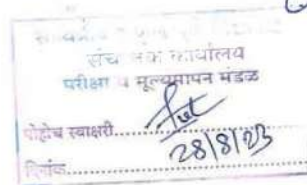 संचालक कार्यालय
परीक्षा व मूल्यमापन मंडळ
पोहोच स्वाक्षरी..............
28/8/23
दिनांक..............